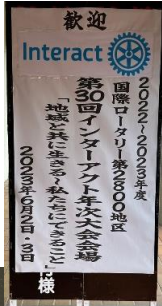 歓迎
Interact
2022~2023年度
国際ロータリー第2800地区
第30回インターアクト年次大会会場
「地域と共に生きる~私たちにできること」
2023年6月2日・3日
様